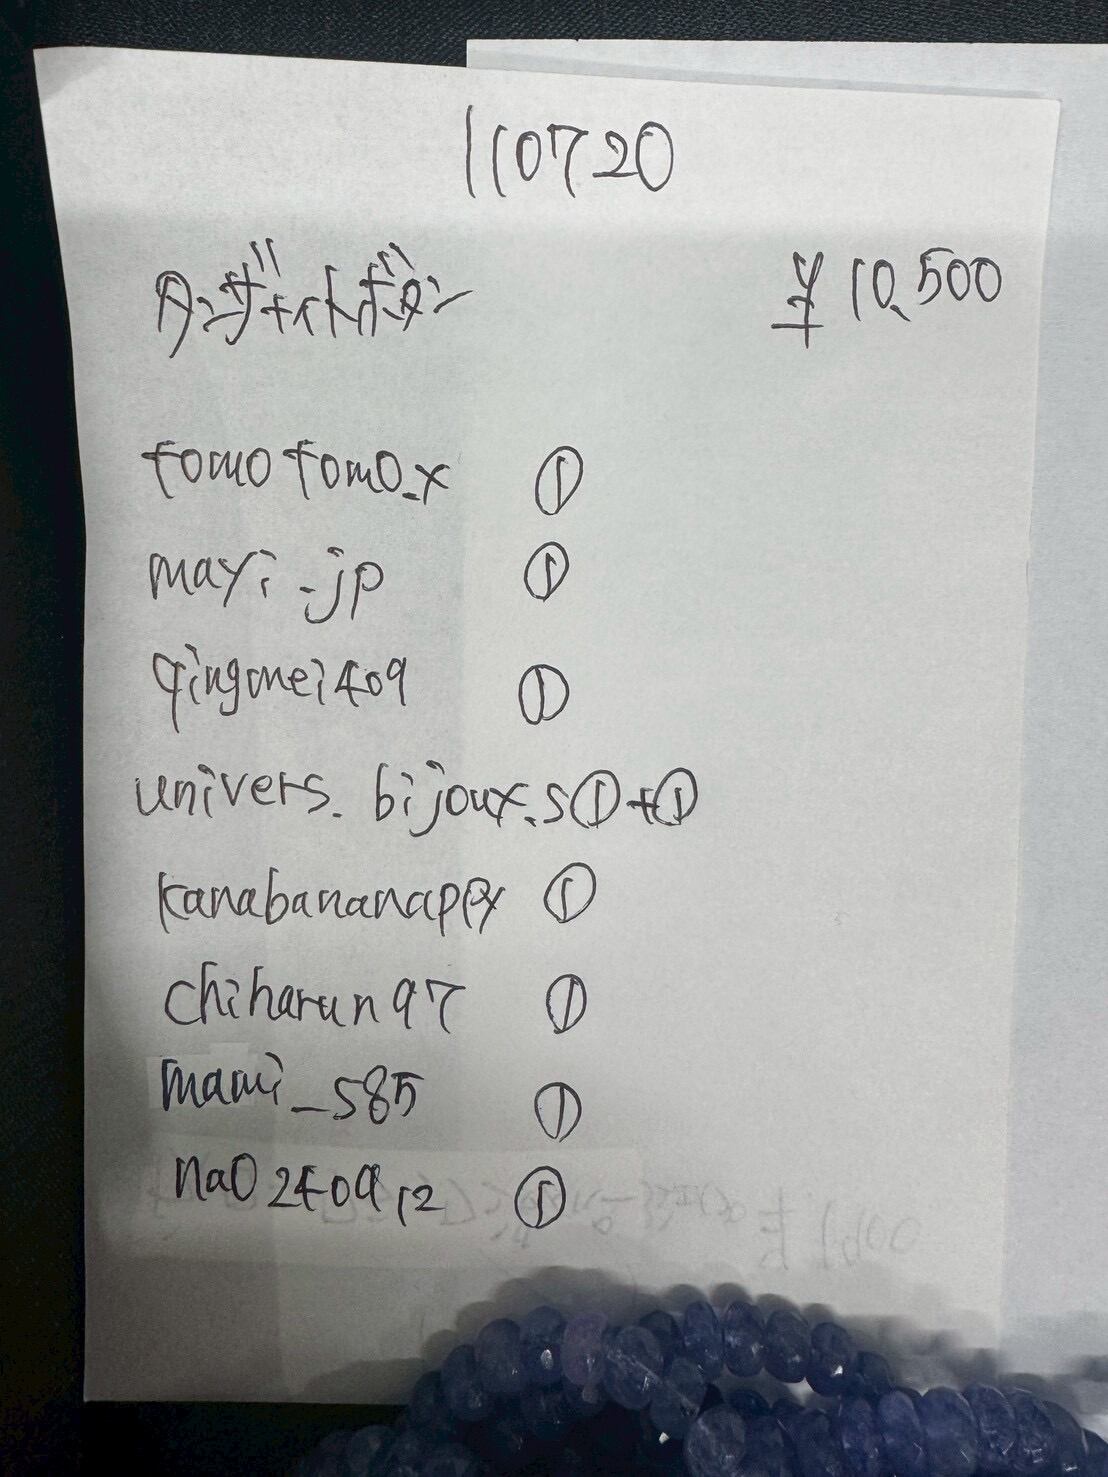 110720
タンザナイトボタン ¥10,500
tomotomo.x ①
mayi_jp ①
qingmei409 ①
univers.bijoux.s①+①
kanabananappy ①
chiharun97 ①
mami_585 ①
nao240912 ①